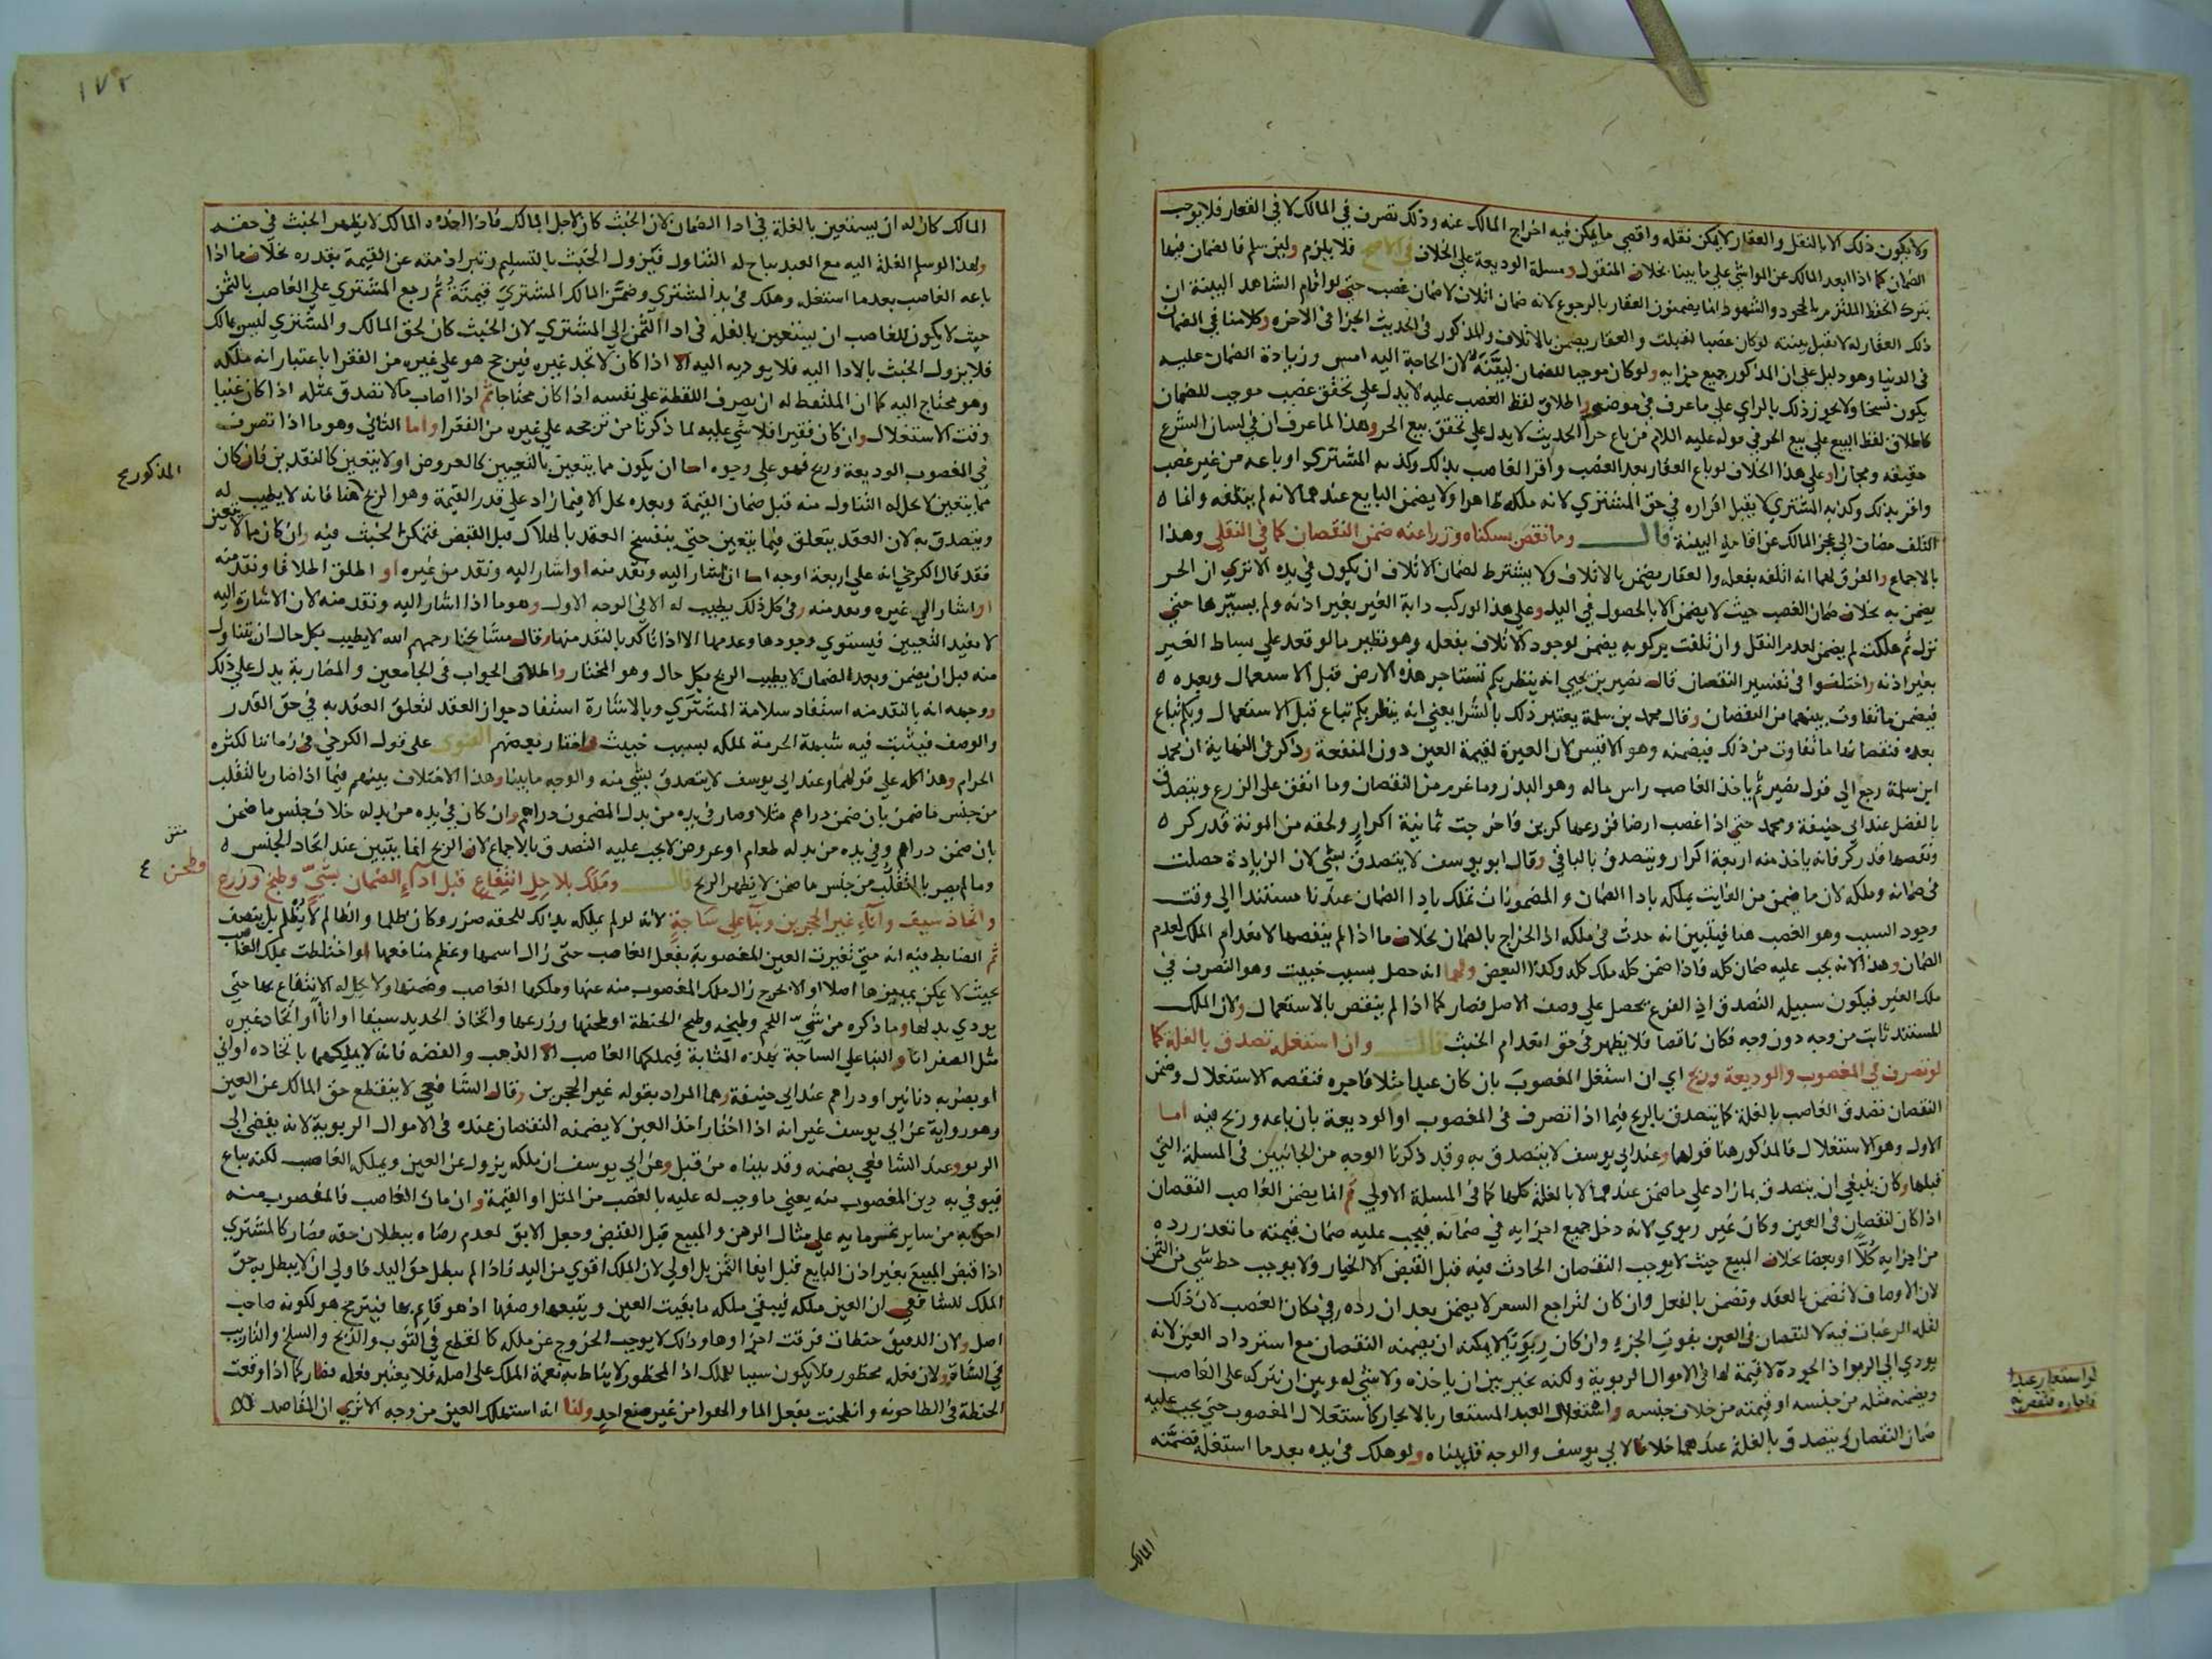 ولا يكون ذلك الا بالنقل والعقار لا يمكن نقله واقصى ما يمكن فيه اخراج المالك عنه وذلك تصرف في المالك لا في العقار فلا يوجب
الضمان كما اذا ابعد المالك عن المواشي على ما بينا بخلاف المنقول ومسلة الوديعة على الخلاف في الاصح فلا يلزم ولين سلم فالضمان فيها
بترك الحفظ الملتزم بالجحود والشهود انما يضمنون العقار بالرجوع لانه ضمان اتلاف لا ضمان غصب حتى لو اقام الشاهد البينة ان
ذلك العقار له لا تقبل بينته لو كان غصبا لقبلت والعقار يضمن بالاتلاف والمذكور في الحديث الجزا في الاخرة وكلامنا في الضمان
في الدنيا وهو دليل على ان المذكور جميع جزايه ولو كان موجبا للضمان لبينه لان الحاجة اليه امس وزيادة الضمان عليه
يكون نسخا ولا يجوز ذلك بالراي على ما عرف في موضعه واطلاق لفظ الغصب عليه لا يدل على تحقق غصب موجب للضمان
كاطلاق لفظ البيع على بيع الحر في قوله عليه السلام من باع حرا الحديث لا يدل على تحقق بيع الحر وهذا لما عرف ان في لسان الشرع
حقيقة ومجازا وعلى هذا الخلاف لو باع العقار بعد الغصب واقر الغاصب بذلك وكذبه المشتري او باعه من غير غصب
واقر بذلك وكذبه المشتري لا يقبل اقراره في حق المشتري لانه ملكه ظاهرا ولا يضمن البايع عندهما لانه لم يتلفه وانما
التلف مضاف الى عجز المالك عن اقامة البينة قال وما نقص بسكناه وزراعته ضمن النقصان كما في النقلي وهذا
بالاجماع والفرق لهما انه اتلفه بفعله والعقار يضمن بالاتلاف ولا يشترط لضمان الاتلاف ان يكون في يده الا ترى ان الحر
يضمن به بخلاف ضمان الغصب حيث لا يضمن الا بالحصول في اليد وعلى هذا لو ركب دابة الغير بغير اذنه ولم يسيرها حتى
نزل ثم هلكت لم يضمن لعدم النقل وان تلفت بركوبه يضمن لوجود الاتلاف بفعله وهو نظير ما لو قعد على بساط الغير
بغير اذنه واختلفوا في تفسير النقصان قال نصير بن يحيى انه ينظر بكم تستاجر هذه الارض قبل الاستعمال وبعده
فيضمن ما تفاوت بينهما من النقصان وقال محمد بن سلمة يعتبر ذلك بالشرا يعني انه ينظر بكم تباع قبل الاستعمال وبكم تباع
بعده فنقصانها ما تفاوت من ذلك فيضمنه وهو الاقيس لان العبرة لقيمة العين دون المنفعة وذكر في النهاية ان محمد
ابن سلمة رجع الى قول نصير ثم ياخذ الغاصب راس ماله وهو البذر وما غرم من النقصان وما انفق على الزرع ويتصدق
بالفضل عند ابي حنيفة ومحمد حتى اذا غصب ارضا فزرعها كرين فاخرجت ثمانية اكرار ولحقه من المونة قدر كر
ونقصها قدر كر فانه ياخذ منه اربعة اكرار ويتصدق بالباقي وقال ابو يوسف لا يتصدق بشي لان الزيادة حصلت
في ضمانه وملكه لان ما يضمن من الفايت يملكه باداء الضمان والمضمونات تملك باداء الضمان عندنا مستندا الى وقت
وجود السبب وهو الغصب هنا فيتبين انه حدث في ملكه اذ الخراج بالضمان بخلاف ما اذا لم ينقصها لانعدام الملك لعدم
الضمان وهذا لانه يجب عليه ضمان كله فاذا ضمن كله ملك كله وكذا البعض ولهما انه حصل بسبب خبيث وهو التصرف في
ملك الغير فيكون سبيله التصدق اذ الفرع يحصل على وصف الاصل فصار كما اذا لم ينقص بالاستعمال ولان الملك
المستند ثابت من وجه دون وجه فكان ناقصا فلا يظهر في حق انعدام الخبث قال وان استغله تصدق بالغلة كما
لو تصرف في المغصوب والوديعة وربح اي ان استغل المغصوب بان كان عبدا مثلا فاجره فنقصه الاستغلال وضمن
النقصان تصدق الغاصب بالغلة كما يتصدق بالربح فيما اذا تصرف في المغصوب او الوديعة بان باعه وربح فيه اما
الاول وهو الاستغلال فالمذكور هنا قولهما وعند ابي يوسف لا يتصدق به وقد ذكرنا الوجه من الجانبين في المسلة التي
قبلها وكان ينبغي ان يتصدق بما زاد على ما ضمن عندهما لا بالغلة كلها كما في المسلة الاولى ثم انما يضمن الغاصب النقصان
اذا كان النقصان في العين وكان غير ربوي لانه دخل جميع اجزايه في ضمانه فيجب عليه ضمان قيمته ما تعذر رده
من اجزايه كلا او بعضا بخلاف المبيع حيث لا يوجب النقصان الحادث فيه قبل القبض الا الخيار ولا يوجب حط شي من الثمن
لان الاوصاف لا تضمن بالعقد وتضمن بالفعل وان كان لتراجع السعر لا يضمن بعد ان رده في مكان الغصب لان ذلك
لقلة الرغبات فيه لا لنقصان في العين بفوت الجزء وان كان ربويا لا يمكنه ان يضمنه النقصان مع استرداد العين لانه
يودي الى الربوا اذ الجودة لا قيمة لها في الاموال الربوية ولكنه يخير بين ان ياخذه ولا شي له وبين ان يتركه على الغاصب
ويضمنه مثله من جنسه او قيمته من خلاف جنسه واستغلال العبد المستعار بالايجار كاستغلال المغصوب حتى يجب عليه
ضمان النقصان ويتصدق بالغلة عندهما خلافا لابي يوسف والوجه قد بيناه ولو هلك في يده بعد ما استغله فضمنه
لو استعار عبدا
فاجاره فنقص
المالك
١٧٢
المالك كان له ان يستعين بالغلة في اداء الضمان لان الخبث كان لاجل المالك فاذا اخذه المالك لا يظهر الخبث في حقه
ولهذا لو سلم الغلة اليه مع العبد يباح له التناول فيزول الخبث بالتسليم وتبرا ذمته عن القيمة بقدره بخلاف ما اذا
باعه الغاصب بعد ما استغله وهلك في يد المشتري وضمن المالك المشتري قيمته ثم رجع المشتري على الغاصب بالثمن
حيث لا يكون للغاصب ان يستعين بالغلة في اداء الثمن الى المشتري لان الخبث كان لحق المالك والمشتري ليس بمالك
فلا يزول الخبث بالاداء اليه فلا يوديه اليه الا اذا كان لا يجد غيره فيرجح هو على غيره من الفقرا باعتبار انه ملكه
وهو محتاج اليه كما ان الملتقط له ان يصرف اللقطة على نفسه اذا كان محتاجا ثم اذا اصاب مالا تصدق بمثله اذا كان غنيا
وقت الاستغلال وان كان فقيرا فلا شي عليه لما ذكرنا من ترجحه على غيره من الفقرا واما الثاني وهو ما اذا تصرف
في المغصوب الوديعة وربح فهو على وجوه اما ان يكون مما يتعين بالتعيين كالعروض او لا يتعين كالنقدين فان كان
مما يتعين لا يحل له التناول منه قبل ضمان القيمة وبعده يحل الا فيما زاد على قدر القيمة وهو الربح هنا فانه لا يطيب له
ويتصدق به لان العقد يتعلق فيما يتعين حتى ينفسخ العقد بالهلاك قبل القبض فتمكن الخبث فيه وان كان مما لا يتعين
فقد قال الكرخي انه على اربعة اوجه اما ان اشار اليه ونقد منه او اشار اليه ونقد من غيره او اطلق اطلاقا ونقد منه
او اشار الى غيره ونقد منه وفي كل ذلك يطيب له الا في الوجه الاول وهو ما اذا اشار اليه ونقد منه لان الاشارة اليه
لا تفيد التعيين فيستوي وجودها وعدمها الا اذا تاكد بالنقد منها وقال مشايخنا رحمهم الله لا يطيب بكل حال ان يتناول
منه قبل ان يضمن وبعد الضمان لا يطيب الربح بكل حال وهو المختار واطلاق الجواب في الجامعين والمضاربة يدل على ذلك
ووجهه انه بالنقد منه استفاد سلامة المشتري وبالاشارة استفاد جواز العقد لتعلق العقد به في حق القدر
والوصف فيثبت فيه شبهة الحرمة لملكه بسبب خبيث واختار بعضهم الفتوى على قول الكرخي في زماننا لكثرة
الحرام وهذا كله على قولهما وعند ابي يوسف لا يتصدق بشي منه والوجه ما بينا وهذا الاختلاف بينهم فيما اذا صار بالتقلب
من جنس ما ضمن بان ضمن دراهم مثلا وصار في يده من بدل المضمون دراهم وان كان في يده من بدله خلاف جنس ما ضمن
بان ضمن دراهم وفي يده من بدله طعام او عروض لا يجب عليه التصدق بالاجماع لان الربح انما يتبين عند اتحاد الجنس
وما لم يصر بالتقلب من جنس ما ضمن لا يظهر الربح قال وملك بلا حل انتفاع قبل اداء الضمان بشي وطبخ وزرع
واتخاذ سيف واناء غير الحجرين وبناء على ساجة لانه لو لم يملكه بذلك للحقه ضرر وكان ظلما والظالم لا يظلم بل ينصف
ثم الضابط فيه انه متى تغيرت العين المغصوبة بفعل الغاصب حتى زال اسمها وعظم منافعها او اختلطت بملك الغاصب
بحيث لا يمكن تمييزها اصلا او الا بحرج زال ملك المغصوب منه عنها وملكها الغاصب وضمنها ولا يحل له الانتفاع بها حتى
يودي بدلها وما ذكره من شي اللحم وطبخه وطبخ الحنطة او طحنها وزرعها واتخاذ الحديد سيفا او اناء او اتخاذ غيره
مثل الصفر اناء والبنا على الساجة بهذه المثابة فيملكها الغاصب الا الذهب والفضة فانه لا يملكهما باتخاذه اواني
او بضربه دنانير او دراهم عند ابي حنيفة وهما المراد بقوله غير الحجرين وقال الشافعي لا ينقطع حق المالك عن العين
وهو رواية عن ابي يوسف غير انه اذا اختار اخذ العين لا يضمنه النقصان عنده في الاموال الربوية لانه يفضي الى
الربو وعند الشافعي يضمنه وقد بيناه من قبل وعن ابي يوسف ان ملكه يزول عن العين ويملكه الغاصب لكنه يباع
فيوفي به دين المغصوب منه يعني ما وجب له عليه بالغصب من المثل او القيمة وان مات الغاصب فالمغصوب منه
احق به من ساير غرمايه على مثال الرهن والمبيع قبل القبض وجعل الابق لعدم رضاه ببطلان حقه فصار كالمشتري
اذا قبض المبيع بغير اذن البايع قبل ايفا الثمن بل اولى لان الملك اقوى من اليد فاذا لم يبطل حق اليد فاولى ان لا يبطل به حق
الملك للشافعي ان العين ملكه فيبقى ملكه ما بقيت العين ويتبعها وصفها اذ هو قايم بها فيترجح هو لكونه صاحب
اصل ولان الدقيق حنطة فرقت اجزاوها وذلك لا يوجب الخروج عن ملكه كالقطع في الثوب والذبح والسلخ والتاريب
في الشاة ولان فعله محظور فلا يكون سببا للملك اذ المحظور لا يناط به نعمة الملك على اصله فلا يعتبر فعله فصار كما اذا وقعت
الحنطة في الطاحونة وانطحنت بفعل الما والهوا من غير صنع احد ولنا انه استهلك العين من وجه الا ترى ان المقاصد
المذكور ح
متن
وطحن
٤